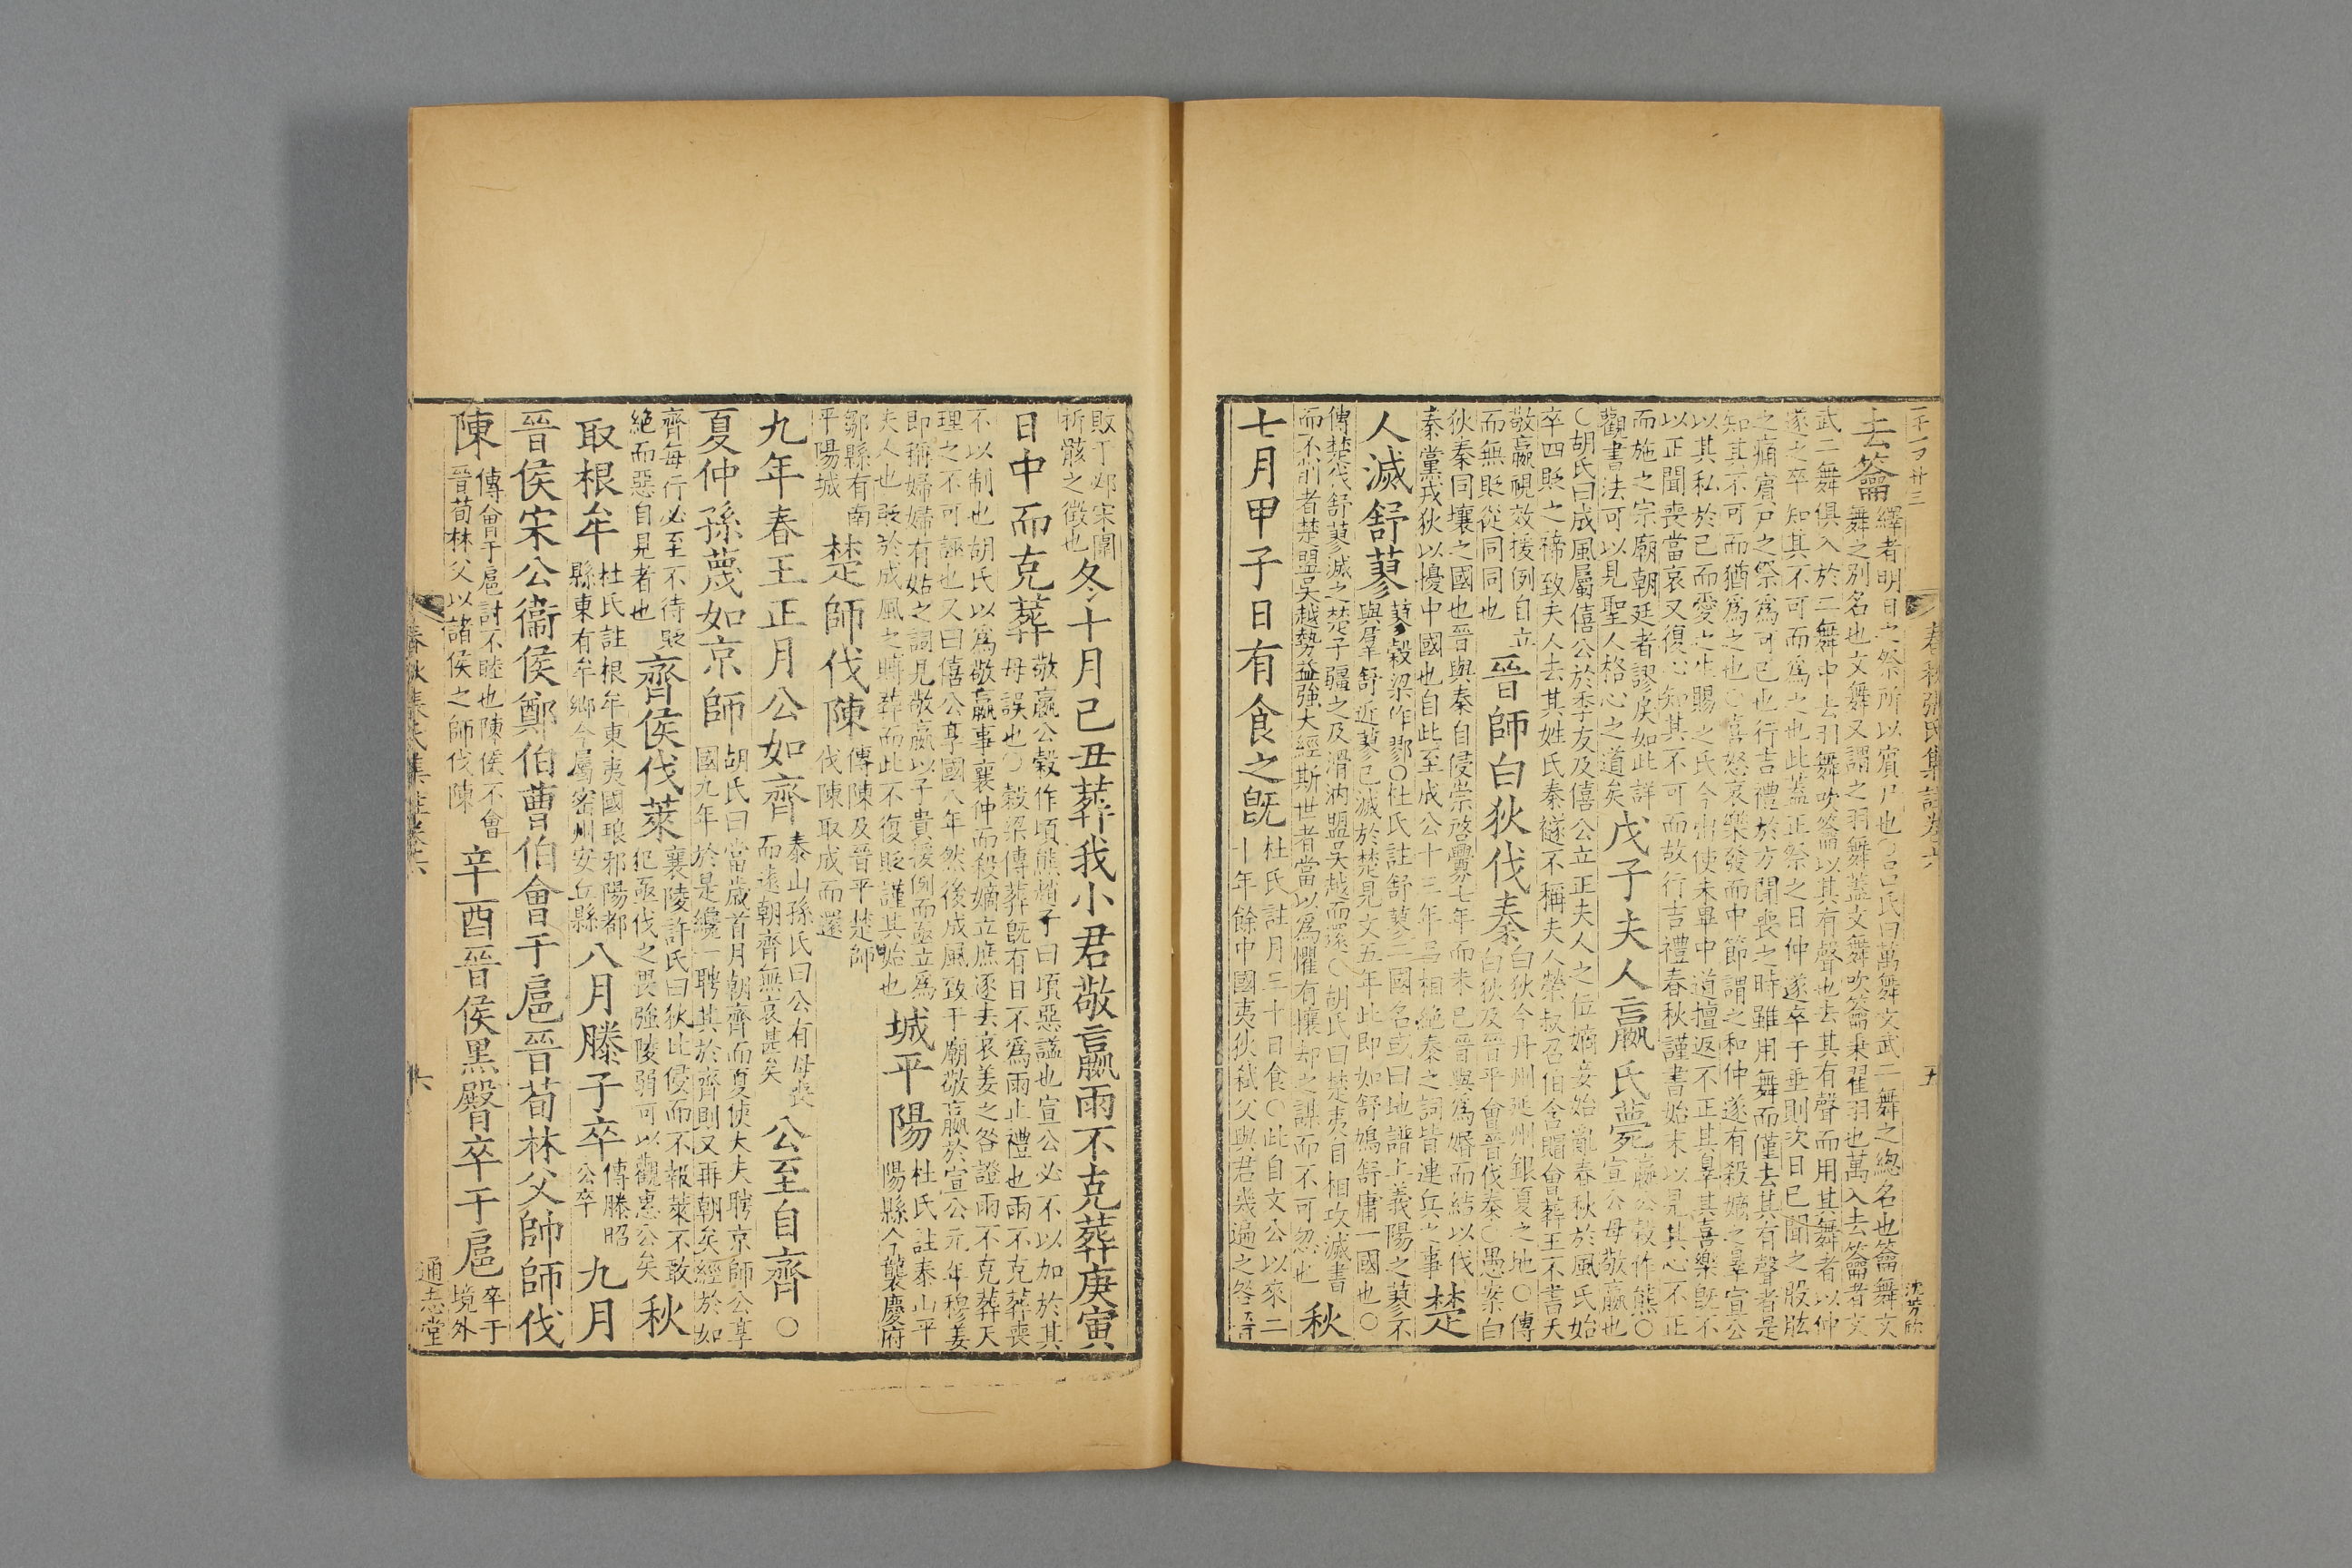 春秋張氏集註卷六
五
去籥繹者明日之祭所以賓尸也○呂氏曰萬舞文武二舞之總名也籥舞文
舞之别名也文舞又謂之羽舞蓋文舞吹籥秉翟羽也萬入去籥者文
武二舞俱入於二舞中去羽舞吹籥以其有聲也去其有聲而用其舞者以仲
遂之卒知其不可而爲之也此蓋正祭之日仲遂卒于垂則次日已聞之股肱
之痛賓尸之祭爲可已也行吉禮於方聞喪之時雖用舞而僅去其有聲者是
知其不可而猶爲之也○喜怒哀樂發而中節謂之和仲遂有殺嫡之辠宣公
以其私於已而愛之生賜之氏今出使未畢中道擅返不正其辠其喜樂旣不
以正聞喪當哀又復心知其不可而故行吉禮春秋謹書始末以見其心不正
而施之宗廟朝廷者謬戾如此詳
觀書法可以見聖人格心之道矣戊子夫人嬴氏薨嬴公穀作熊○
宣公母敬嬴也
○胡氏曰成風屬僖公於季友及僖公立正夫人之位嫡妾始亂春秋於風氏始
卒四貶之禘致夫人去其姓氏秦襚不稱夫人榮叔召伯含賵會葬王不書天
敬嬴視效援例自立
而無貶從同同也晉師白狄伐秦白狄今丹州延州銀夏之地○傳
白狄及晉平會晉伐秦○愚案白
狄秦同壤之國也晉與秦自侵崇啓釁七年而未已晉與爲婚而結以伐
秦黨戎狄以擾中國也自此至成公十三年三相絶秦之詞皆連兵之事楚
人滅舒蓼蓼穀梁作鄝○杜氏註舒蓼二國名或曰地譜上義陽之蓼不
與羣舒近蓼已滅於楚見文五年此即如舒鳩舒庸一國也○
傳楚伐舒蓼滅之楚子疆之及滑汭盟吳越而還○胡氏曰楚夷自相攻滅書
而不削者楚盟吳越勢益強大經斯世者當以爲懼有攘却之謀而不可忽也秋
七月甲子日有食之旣杜氏註月三十日食○此自文公以來二
十年餘中國夷狄弒父與君幾遍之咎晉
敗于邲宋圍
析骸之徵也冬十月己丑葬我小君敬嬴雨不克葬庚寅
日中而克葬敬嬴公穀作頃熊趙子曰頃惡諡也宣公必不以加於其
母誤也○穀梁傳葬旣有日不爲雨止禮也雨不克葬喪
不以制也胡氏以爲敬嬴事襄仲而殺嫡立庶逐去哀姜之咎證雨不克葬天
理之不可誣也又曰僖公享國八年然後成風致于廟敬嬴於宣公元年穆姜
即稱婦婦有姑之詞見敬嬴以子貴援例而亟立爲
夫人也貶於成風之賵葬而此不復貶謹其始也城平陽杜氏註泰山平
陽縣今襲慶府
鄒縣有南
平陽城楚師伐陳傳陳及晉平楚師
伐陳取成而還
九年春王正月公如齊泰山孫氏曰公有母喪
而遠朝齊無哀甚矣公至自齊○
夏仲孫蔑如京師胡氏曰當歲首月朝齊而夏使大夫聘京師公享
國九年於是纔一聘其於齊則又再朝矣經於如
齊每行必至不待貶
絶而惡自見者也齊侯伐萊襄陵許氏曰狄比侵而不報萊不敢
犯亟伐之畏強陵弱可以觀惠公矣秋
取根牟杜氏註根牟東夷國琅邪陽都
縣東有牟鄉今屬密州安丘縣八月滕子卒傳滕昭
公卒九月
晉侯宋公衞侯鄭伯曹伯會于扈晉荀林父帥師伐
陳傳會于扈討不睦也陳侯不會
晉荀林父以諸侯之師伐陳辛酉晉侯黑臀卒于扈卒于
境外
春秋張氏集註卷六
六
通志堂